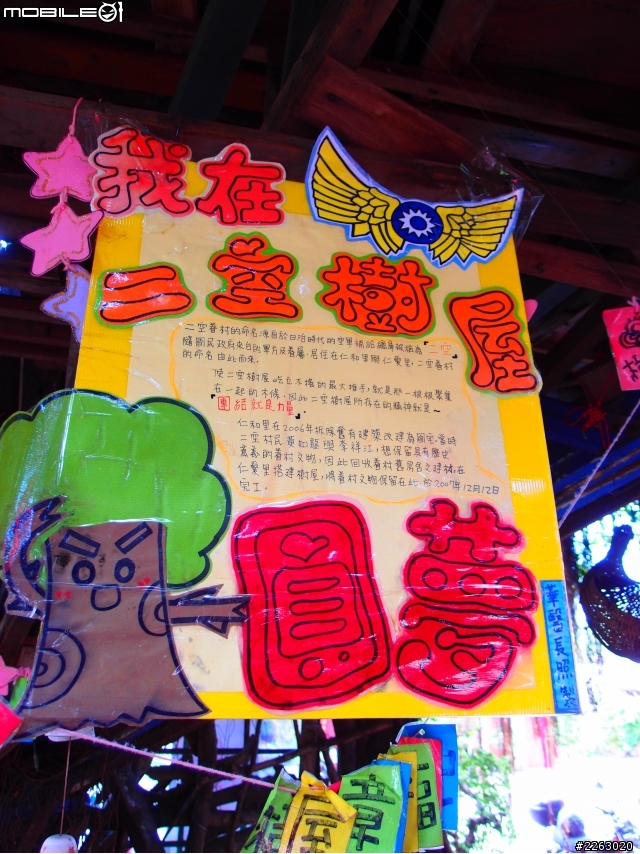 MOBILE01
我在
二空樹屋
二空眷村的命名源自於日治時代的空軍補給總庫被稱為「二空」
隨國民政府來台的軍方及眷屬,居住在仁和里與仁愛里,二空眷村
的命名由此而來。
使二空樹屋屹立不搖的最大推手,就是那一根根聚集
在一起的木條,因此二空樹屋所存在的精神就是~
「團結就是力量」
仁和里在2006年拆除舊有建築改建為國宅,當時
二空村民
李祥江,想保留具有歷史
意義的眷村文物,因此回收眷村舊房舍之建材,在
仁愛里搭建樹屋,將眷村文物保留在此,於2007年12月12日
完工。
圓夢
華醫長照 製
屋
#2263020